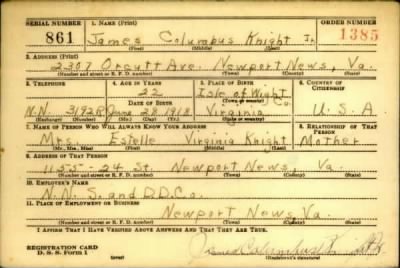 SERIAL NUMBER 1. NAME (Print) ORDER NUMBER
861 James Columbus Knight Jr. 1385
(First) (Middle) (Last)
2. ADDRESS (Print)
2307 Orcutt Ave. Newport News, Va.
(Number and street or R. F. D. number) (Town) (County) (State)
3. TELEPHONE 4. AGE IN YEARS 5. PLACE OF BIRTH 6. COUNTRY OF CITIZENSHIP
22 Isle of Wight Co.
DATE OF BIRTH (Town or county)
N.N. 3192R June 1918 Virginia U.S.A
(Exchange) (Number) (Mo.) (Day) (Yr.) (State or country)
7. NAME OF PERSON WHO WILL ALWAYS KNOW YOUR ADDRESS 8. RELATIONSHIP OF THAT PERSON
Mrs. Estelle Virginia Knight Mother
(Mr., Mrs., Miss) (First) (Middle) (Last)
9. ADDRESS OF THAT PERSON
1155-24 St. Newport News, Va.
(Number and street or R. F. D. number) (Town) (County) (State)
10. EMPLOYER'S NAME
N.N.S. and D.D. Co.
11. PLACE OF EMPLOYMENT OR BUSINESS
Newport News, Va.
(Number and street or R. F. D. number) (Town) (County) (State)
I AFFIRM THAT I HAVE VERIFIED ABOVE ANSWERS AND THAT THEY ARE TRUE.
REGISTRATION CARD
D. S. S. Form 1 (over) (Registrant's signature)
James Columbus Knight Jr.